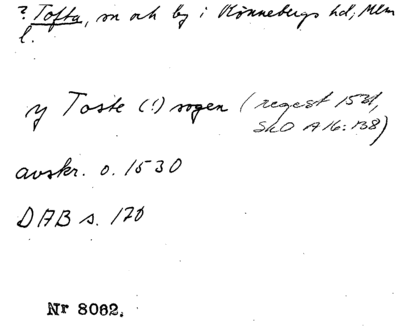 ? Tofta, sn och by i Rönnebergs hd, Mlm
l.
y Toste (!) sogen (regest 1531,
SkO A16:138)
avskr. o. 1530
DAB s. 170
Nr 8062.